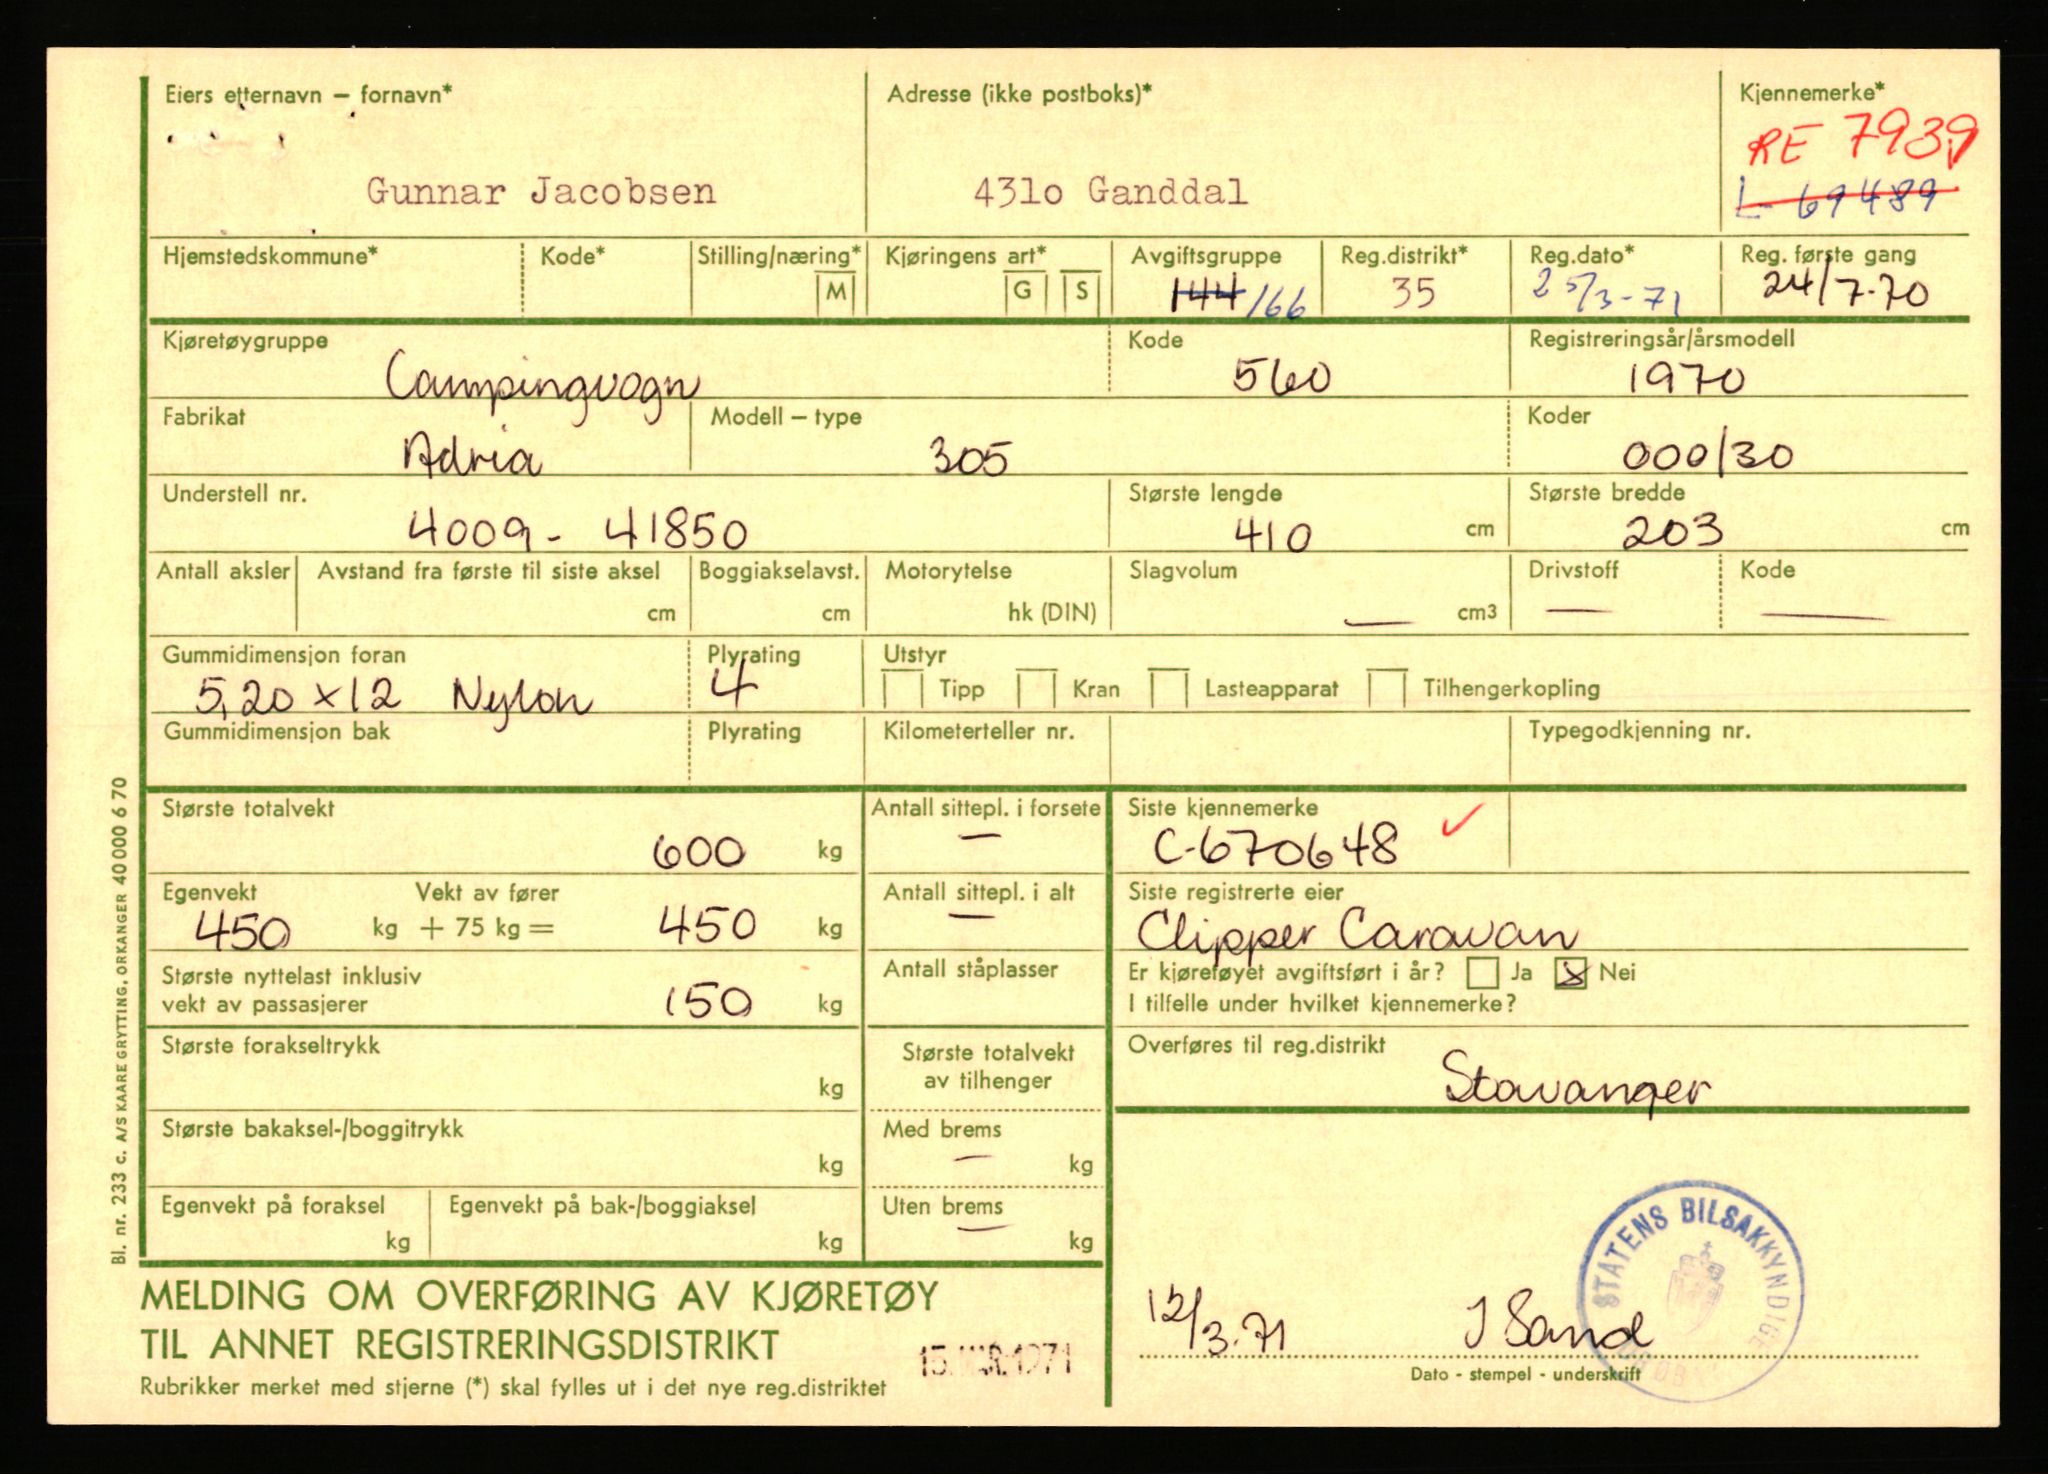 Eiers etternavn – fornavn*
Adresse (ikke postboks)*
Kjennemerke*
RE 7939
Gunnar Jacobsen
431o Ganddal
L-69489
Hjemstedskommune*
Kode*
Stilling/næring*
M
Kjøringens art*
G
S
Avgiftsgruppe
144/66
Reg.distrikt*
35
Reg.dato*
25/3-71
Reg. første gang
24/7-70
Kjøretøygruppe
Campingvogn
Kode
560
Registreringsår/årsmodell
1970
Fabrikat
Adria
Modell – type
305
Koder
000/30
Understell nr.
4009- 41850
Største lengde
410 cm
Største bredde
203 cm
Antall aksler
Avstand fra første til siste aksel
cm
Boggiakselavst.
cm
Motorytelse
hk (DIN)
Slagvolum
— cm3
Drivstoff
—
Kode
—
Gummidimensjon foran
5,20 x 12 Nylon
Plyrating
4
Utstyr
Tipp
Kran
Lasteapparat
Tilhengerkopling
Gummidimensjon bak
Plyrating
Kilometerteller nr.
Typegodkjenning nr.
Største totalvekt
600 kg
Antall sittepl. i forsete
—
Siste kjennemerke
C-670648 ✓
Egenvekt
450 kg
Vekt av fører
+ 75 kg =
450 kg
Antall sittepl. i alt
—
Siste registrerte eier
Clipper Caravan
Største nyttelast inklusiv
vekt av passasjerer
150 kg
Antall ståplasser
Er kjøretøyet avgiftsført i år? Ja x Nei
I tilfelle under hvilket kjennemerke?
Største forakseltrykk
kg
Største totalvekt
av tilhenger
Overføres til reg.distrikt
Stavanger
Største bakaksel-/boggitrykk
kg
Med brems
— kg
Egenvekt på foraksel
kg
Egenvekt på bak-/boggiaksel
kg
Uten brems
— kg
MELDING OM OVERFØRING AV KJØRETØY
TIL ANNET REGISTRERINGSDISTRIKT
15. MAR. 1971
Rubrikker merket med stjerne (*) skal fylles ut i det nye reg.distriktet
12/3.71
J Sand
STATENS BILSAKKYNDIGE
Dato - stempel - underskrift
Bl. nr. 233 c. A/S KAARE GRYTTING, ORKANGER 40 000 6 70